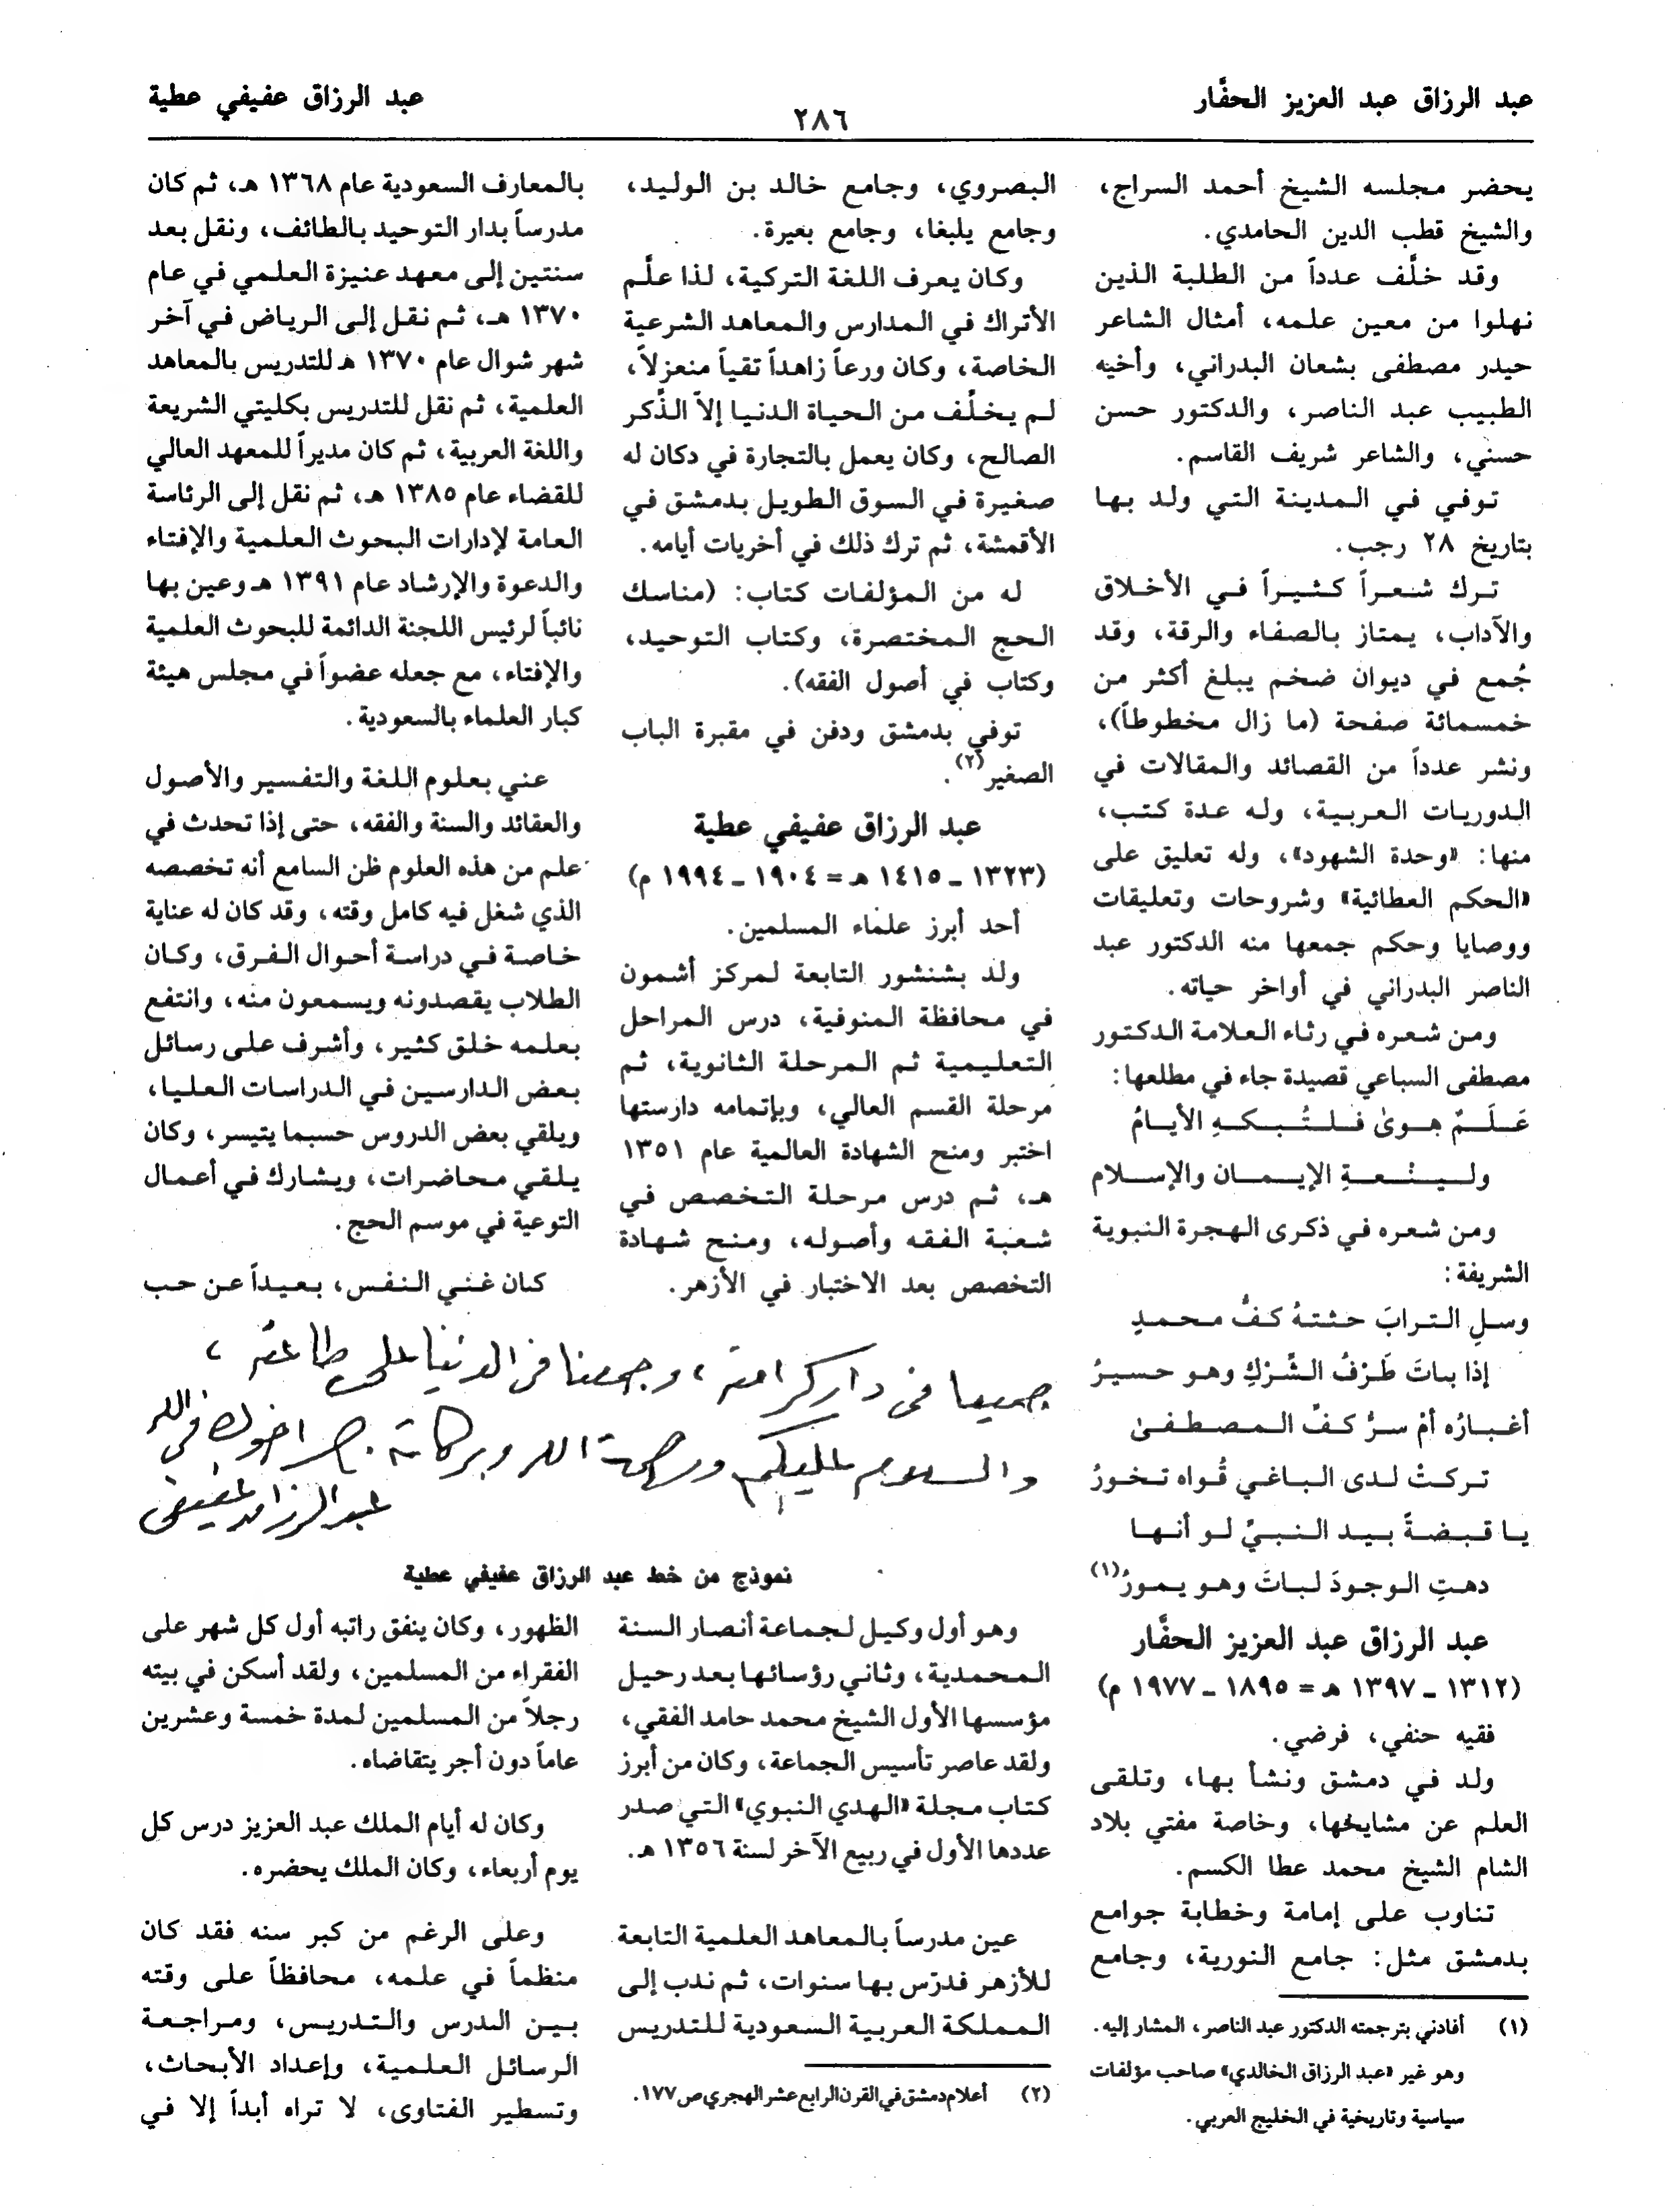 عبد الرزاق عبد العزيز الحفَّار
٢٨٦
عبد الرزاق عفيفي عطية
يحضر مجلسه الشيخ أحمد السراج،
والشيخ قطب الدين الحامدي.
وقد خلَّف عدداً من الطلبة الذين
نهلوا من معين علمه، أمثال الشاعر
حيدر مصطفى بشعان البدراني، وأخيه
الطبيب عبد الناصر، والدكتور حسن
حسني، والشاعر شريف القاسم.
توفي في المدينة التي ولد بها
بتاريخ ٢٨ رجب.
ترك شعراً كثيراً في الأخلاق
والآداب، يمتاز بالصفاء والرقة، وقد
جُمع في ديوان ضخم يبلغ أكثر من
خمسمائة صفحة (ما زال مخطوطاً)،
ونشر عدداً من القصائد والمقالات في
الدوريات العربية، وله عدة كتب،
منها: «وحدة الشهود»، وله تعليق على
«الحكم العطائية» وشروحات وتعليقات
ووصايا وحكم جمعها منه الدكتور عبد
الناصر البدراني في أواخر حياته.
ومن شعره في رثاء العلامة الدكتور
مصطفى السباعي قصيدة جاء في مطلعها:
عَلَمٌ هوىٰ فلتُبكهِ الأيامُ
ولينْعهِ الإيمان والإسلام
ومن شعره في ذكرى الهجرة النبوية
الشريفة:
وسلِ الترابَ حثتهُ كفُّ محمدٍ
إذا باتَ طَرْفُ الشِّرْكِ وهو حسيرُ
أغبارُه أمْ سرُّ كفِّ المصطفىٰ
تركتْ لدى الباغي قُواه تخورُ
يا قبضةً بيد النبيِّ لو أنها
دهتِ الوجودَ لباتَ وهو يمورُ(١)
عبد الرزاق عبد العزيز الحفَّار
(١٣١٢ ـ ١٣٩٧ هـ = ١٨٩٥ ـ ١٩٧٧ م)
فقيه حنفي، فرضي.
ولد في دمشق ونشأ بها، وتلقى
العلم عن مشايخها، وخاصة مفتي بلاد
الشام الشيخ محمد عطا الكسم.
تناوب على إمامة وخطابة جوامع
بدمشق مثل: جامع النورية، وجامع
(١) أفادني بترجمته الدكتور عبد الناصر، المشار إليه.
وهو غير «عبد الرزاق الخالدي» صاحب مؤلفات
سياسية وتاريخية في الخليج العربي.
البصروي، وجامع خالد بن الوليد،
وجامع يلبغا، وجامع بعيرة.
وكان يعرف اللغة التركية، لذا علَّم
الأتراك في المدارس والمعاهد الشرعية
الخاصة، وكان ورعاً زاهداً تقياً منعزلاً،
لم يخلَّف من الحياة الدنيا إلاّ الذَّكر
الصالح، وكان يعمل بالتجارة في دكان له
صغيرة في السوق الطويل بدمشق في
الأقمشة، ثم ترك ذلك في أخريات أيامه.
له من المؤلفات كتاب: (مناسك
الحج المختصرة، وكتاب التوحيد،
وكتاب في أصول الفقه).
توفي بدمشق ودفن في مقبرة الباب
الصغير(٢).
عبد الرزاق عفيفي عطية
(١٣٢٣ ـ ١٤١٥ هـ = ١٩٠٤ ـ ١٩٩٤ م)
أحد أبرز علماء المسلمين.
ولد بشنشور التابعة لمركز أشمون
في محافظة المنوفية، درس المراحل
التعليمية ثم المرحلة الثانوية، ثم
مرحلة القسم العالي، وبإتمامه دارستها
اختبر ومنح الشهادة العالمية عام ١٣٥١
هـ، ثم درس مرحلة التخصص في
شعبة الفقه وأصوله، ومنح شهادة
التخصص بعد الاختبار في الأزهر.
جميعا فى دار كرامته، وجمعنا فى الدنيا على طاعته،
والسلام عليكم ورحمة الله وبركاته. اخوك فى الله
عبدالرزاق عفيفى
نموذج من خط عبد الرزاق عفيفي عطية
وهو أول وكيل لجماعة أنصار السنة
المحمدية، وثاني رؤسائها بعد رحيل
مؤسسها الأول الشيخ محمد حامد الفقي،
ولقد عاصر تأسيس الجماعة، وكان من أبرز
كتاب مجلة «الهدي النبوي» التي صدر
عددها الأول في ربيع الآخر لسنة ١٣٥٦ هـ.
عين مدرساً بالمعاهد العلمية التابعة
للأزهر فدرّس بها سنوات، ثم ندب إلى
المملكة العربية السعودية للتدريس
(٢) أعلام دمشق في القرن الرابع عشر الهجري ص ١٧٧.
بالمعارف السعودية عام ١٣٦٨ هـ، ثم كان
مدرساً بدار التوحيد بالطائف، ونقل بعد
سنتين إلى معهد عنيزة العلمي في عام
١٣٧٠ هـ، ثم نقل إلى الرياض في آخر
شهر شوال عام ١٣٧٠ هـ للتدريس بالمعاهد
العلمية، ثم نقل للتدريس بكليتي الشريعة
واللغة العربية، ثم كان مديراً للمعهد العالي
للقضاء عام ١٣٨٥ هـ، ثم نقل إلى الرئاسة
العامة لإدارات البحوث العلمية والإفتاء
والدعوة والإرشاد عام ١٣٩١ هـ وعين بها
نائباً لرئيس اللجنة الدائمة للبحوث العلمية
والإفتاء، مع جعله عضواً في مجلس هيئة
كبار العلماء بالسعودية.
عني بعلوم اللغة والتفسير والأصول
والعقائد والسنة والفقه، حتى إذا تحدث في
علم من هذه العلوم ظن السامع أنه تخصصه
الذي شغل فيه كامل وقته، وقد كان له عناية
خاصة في دراسة أحوال الفرق، وكان
الطلاب يقصدونه ويسمعون منه، وانتفع
بعلمه خلق كثير، وأشرف على رسائل
بعض الدارسين في الدراسات العليا،
ويلقي بعض الدروس حسبما يتيسر، وكان
يلقي محاضرات، ويشارك في أعمال
التوعية في موسم الحج.
كان غني النفس، بعيداً عن حب
الظهور، وكان ينفق راتبه أول كل شهر على
الفقراء من المسلمين، ولقد أسكن في بيته
رجلاً من المسلمين لمدة خمسة وعشرين
عاماً دون أجر يتقاضاه.
وكان له أيام الملك عبد العزيز درس كل
يوم أربعاء، وكان الملك يحضره.
وعلى الرغم من كبر سنه فقد كان
منظماً في علمه، محافظاً على وقته
بين الدرس والتدريس، ومراجعة
الرسائل العلمية، وإعداد الأبحاث،
وتسطير الفتاوى، لا تراه أبداً إلا في